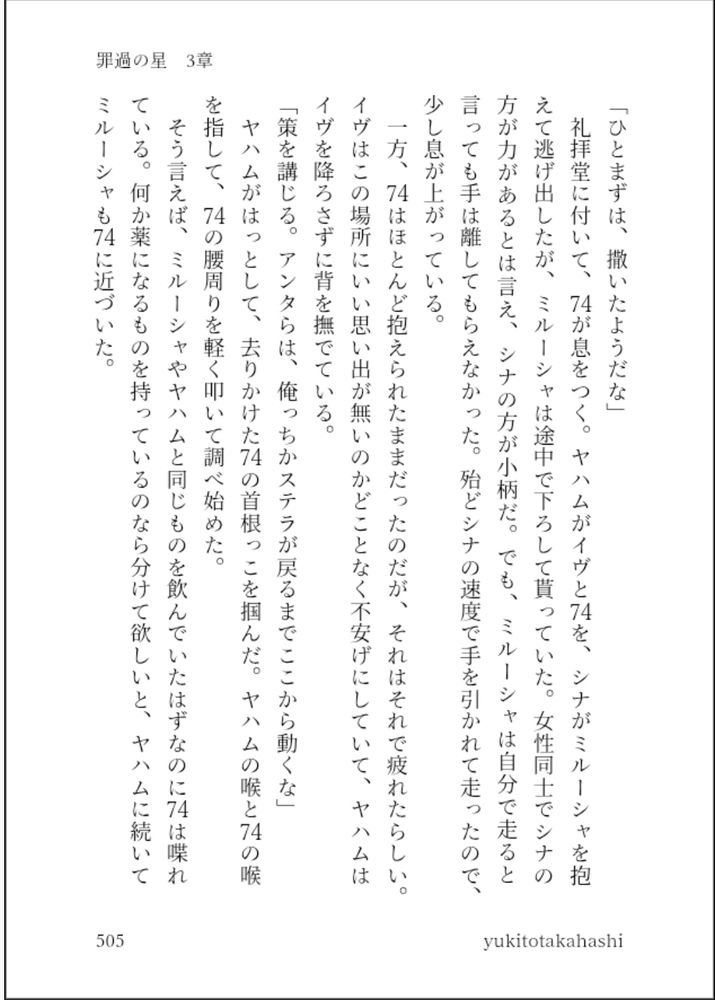 罪過の星　3章
「ひとまずは、撒いたようだな」
　礼拝堂に付いて、74が息をつく。ヤハムがイヴと74を、シナがミルーシャを抱
えて逃げ出したが、ミルーシャは途中で下ろして貰っていた。女性同士でシナの
方が力があるとは言え、シナの方が小柄だ。でも、ミルーシャは自分で走ると
言っても手は離してもらえなかった。殆どシナの速度で手を引かれて走ったので、
少し息が上がっている。
　一方、74はほとんど抱えられたままだったのだが、それはそれで疲れたらしい。
イヴはこの場所にいい思い出が無いのかどことなく不安げにしていて、ヤハムは
イヴを降ろさずに背を撫でている。
「策を講じる。アンタらは、俺っちかステラが戻るまでここから動くな」
　ヤハムがはっとして、去りかけた74の首根っこを掴んだ。ヤハムの喉と74の喉
を指して、74の腰周りを軽く叩いて調べ始めた。
　そう言えば、ミルーシャやヤハムと同じものを飲んでいたはずなのに74は喋れ
ている。何か薬になるものを持っているのなら分けて欲しいと、ヤハムに続いて
ミルーシャも74に近づいた。
505
yukitotakahashi